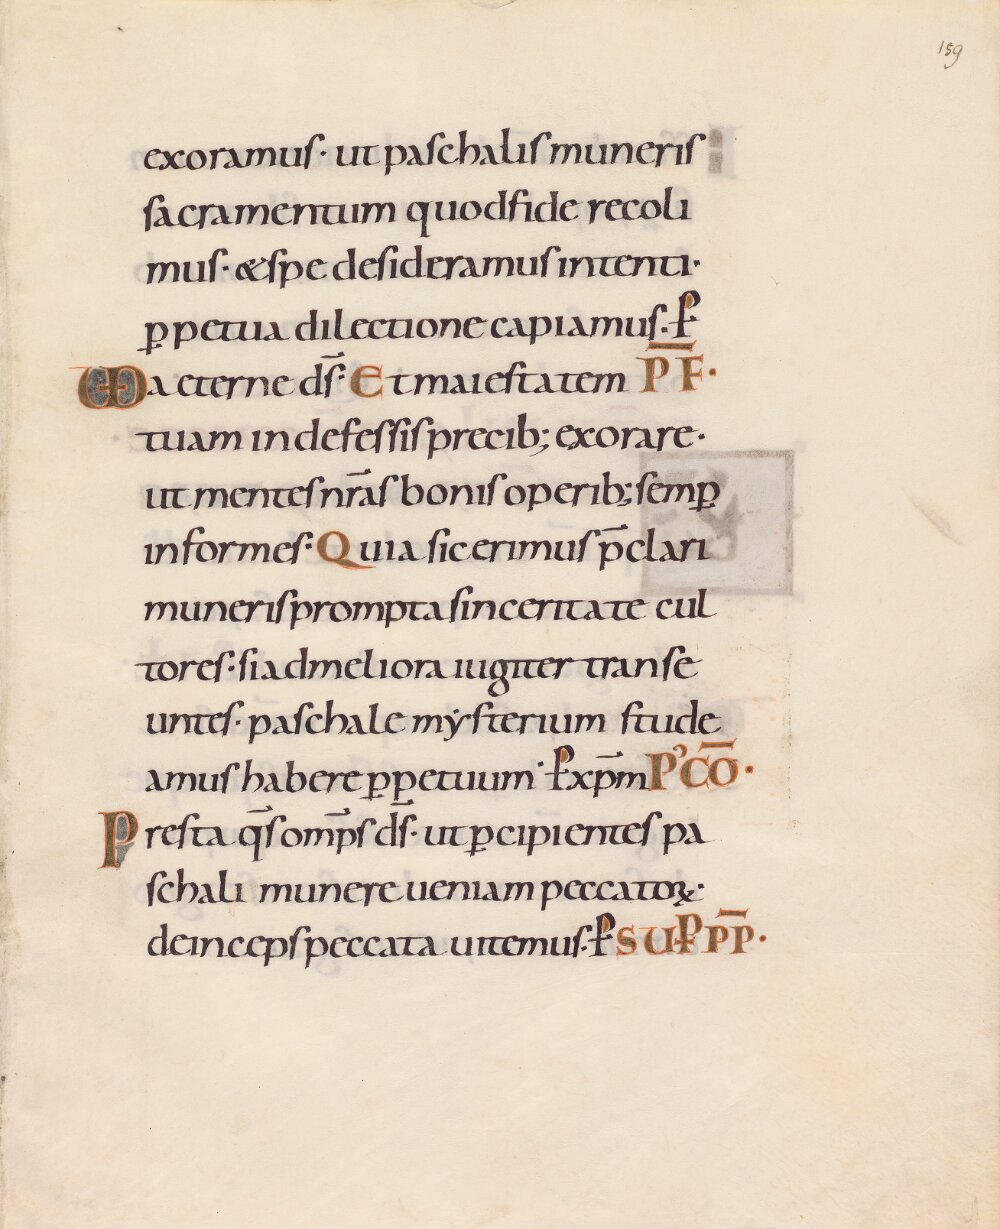 159
exoramus· ut paschalis muneris
sacramentum quod fide recoli
mus· & spe desideramus intenti·
p̲petua dilectione capiamus·
VD aeterne ds̄· Et maiestatem P̄F̄·
tuam indefessis precib; exorare·
ut mentes nr̄as bonis operib; semp̲
informes· Quia sic erimus p̄clari
muneris prompta sinceritate cul
tores· si ad meliora iugiter transe
untes· paschale mẏsterium stude
amus habere p̲petuum· P xp̄m P' CŌ·
Presta q̄s omp̄s ds̄· ut p̲cipientes pa
schali munere ueniam peccatoꝝ·
deinceps peccata uitemus· P SUP PP̄·